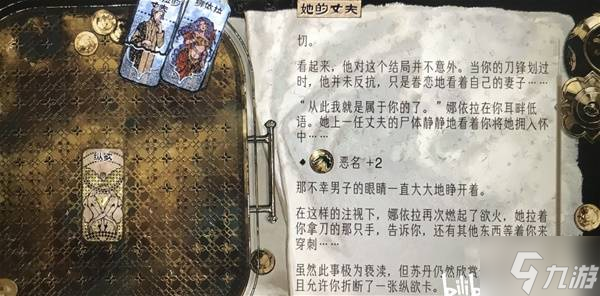 她的丈夫
娜依拉
切。
看起来，他对这个结局并不意外。当你的刀锋划过
时，他并未反抗，只是眷恋地看着自己的妻子……
“从此我就是属于你的了。”娜依拉在你耳畔低
语。她上一任丈夫的尸体静静地看着你将她拥入怀
中……
恶名 +2
那不幸男子的眼睛一直大大地睁开着。
在这样的注视下，娜依拉再次燃起了欲火，她拉着
你拿刀的那只手，告诉你，还有其他东西等着你来
穿刺……
虽然此事极为亵渎，但苏丹仍然欣赏
且允许你折断了一张纵欲卡。
纵欲
bilib
九游